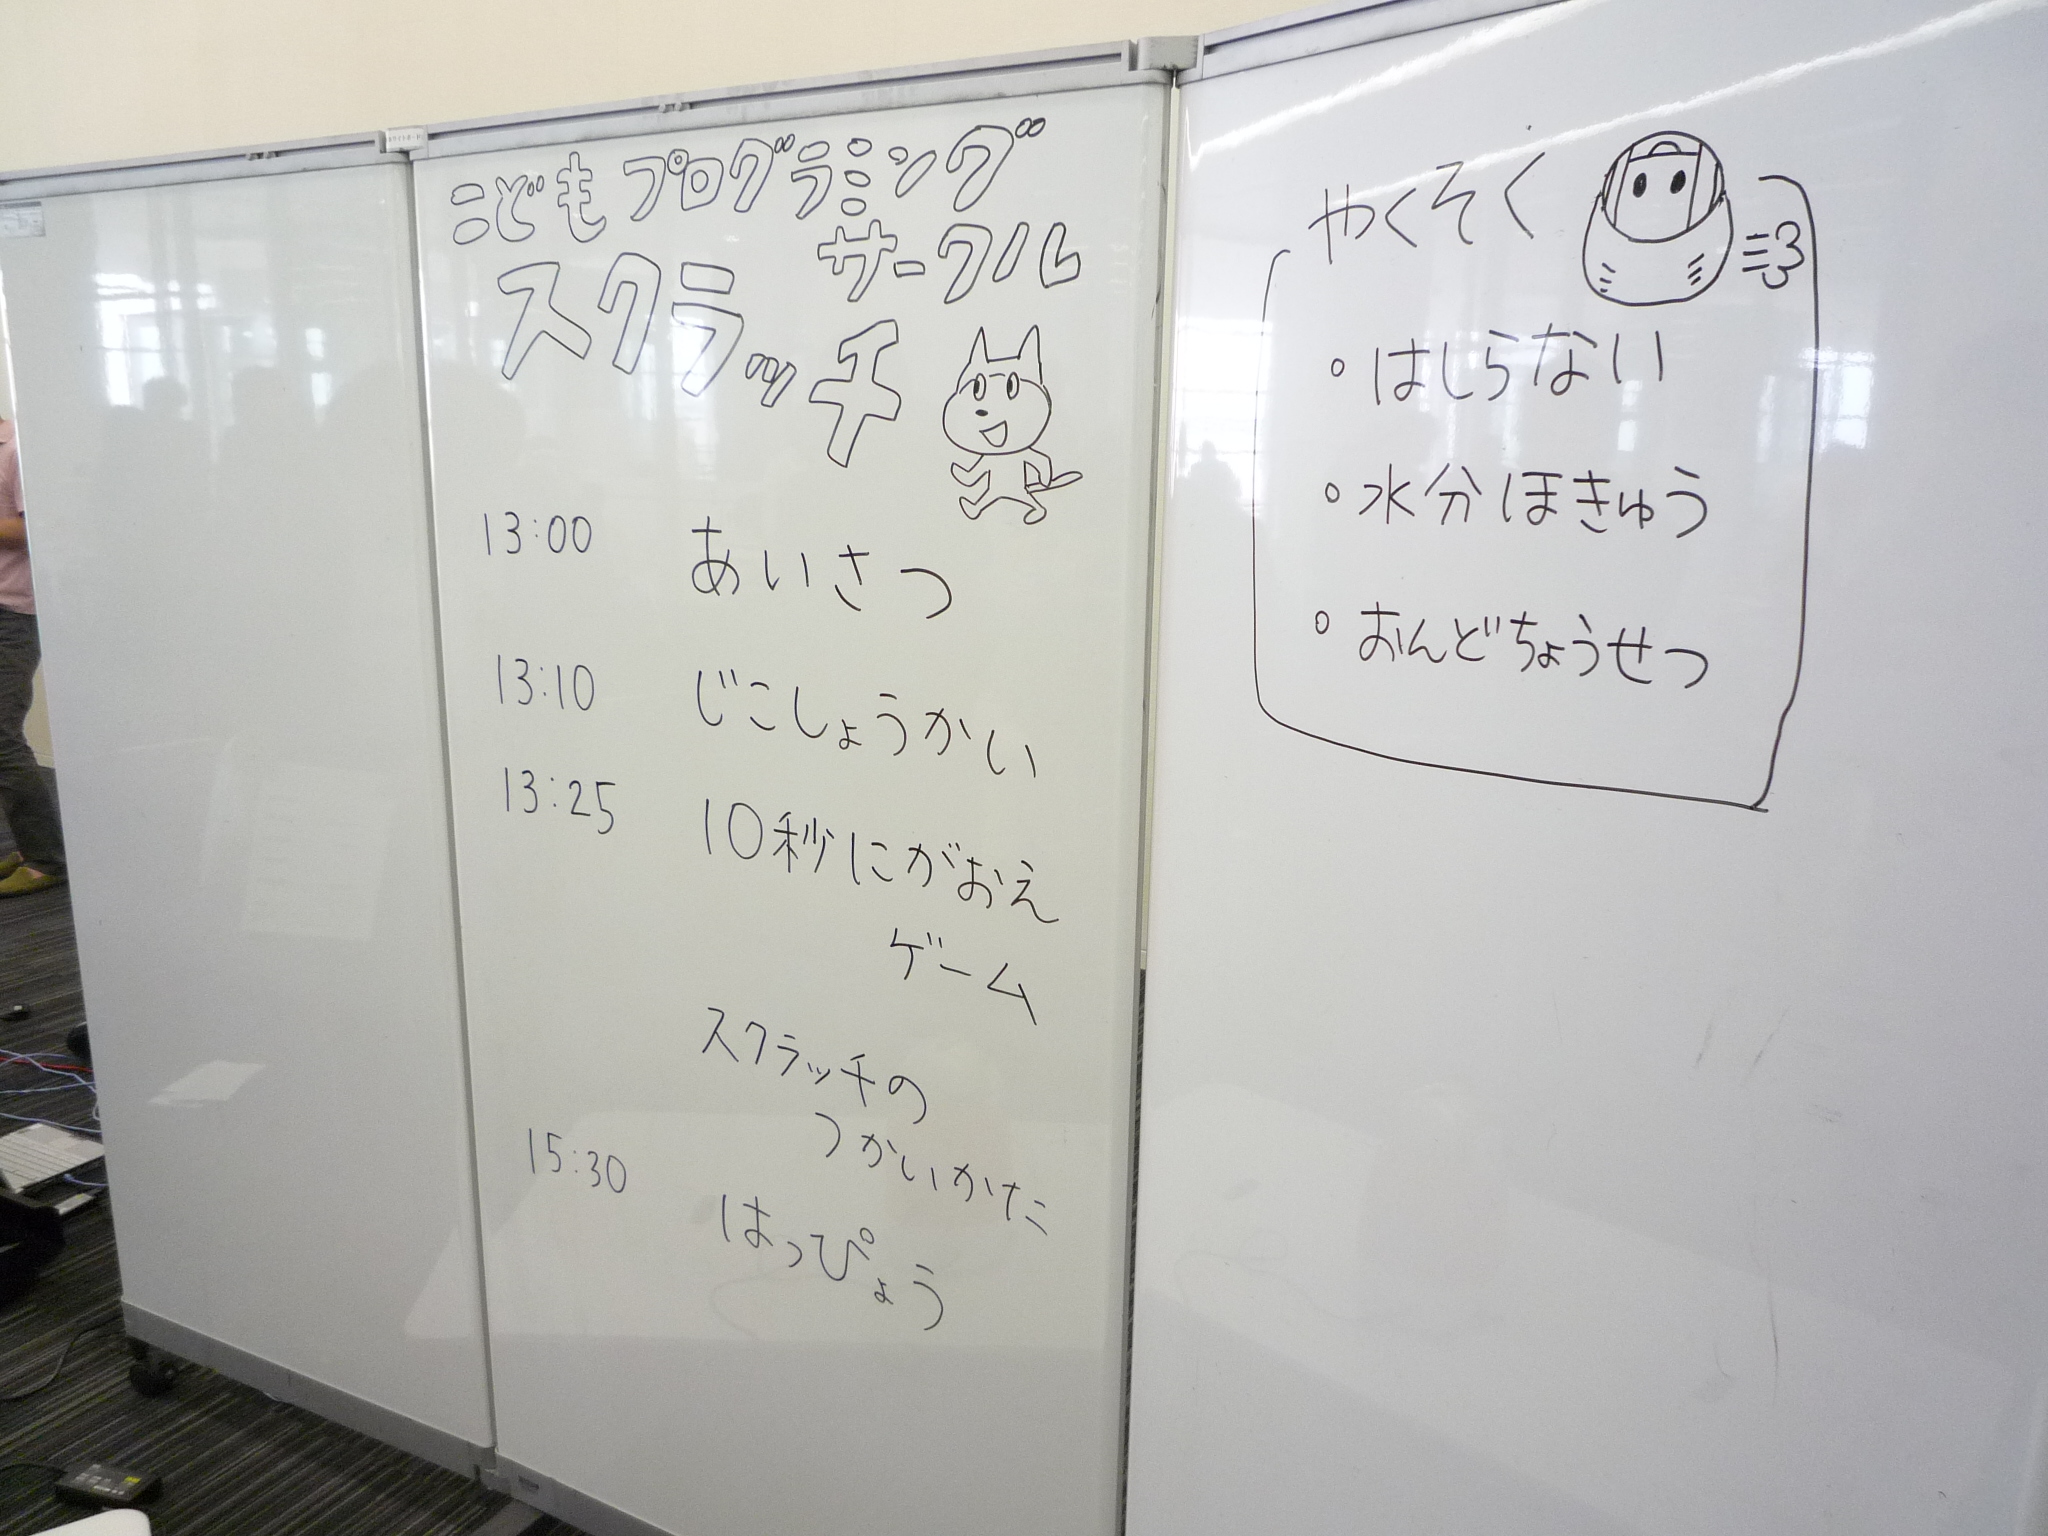 こどもプログラミング
サークル
スクラッチ
13:00 あいさつ
13:10 じこしょうかい
13:25 10秒にがおえ
ゲーム
スクラッチの
つかいかた
15:30 はっぴょう
やくそく
・はしらない
・水分ほきゅう
・おんどちょうせつ